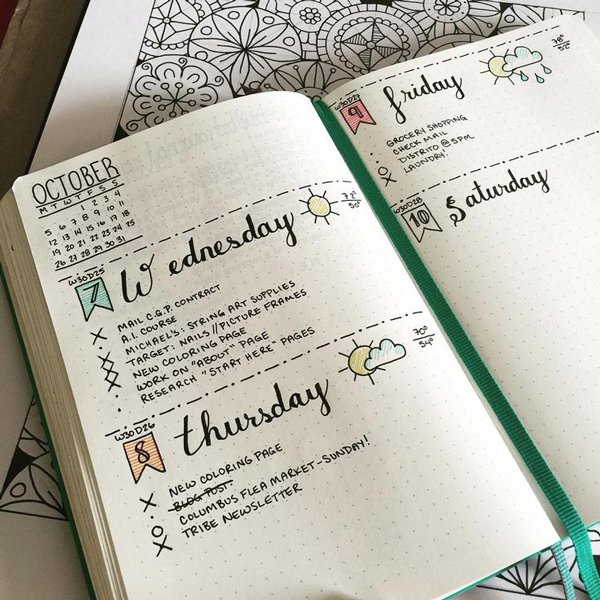 OCTOBER
M T W T F S S
1 2 3 4
5 6 7 8 9 10 11
12 13 14 15 16 17 18
19 20 21 22 23 24 25
26 27 28 29 30 31
W30D25
7 Wednesday 72° 50°
X MAIL C.G.P. CONTRACT
· A.I. COURSE
X MICHAEL'S: STRING ART SUPPLIES
X TARGET: NAILS // PICTURE FRAMES
X NEW COLORING PAGE
· WORK ON "ABOUT" PAGE
· RESEARCH "START HERE" PAGES
W30D26
8 thursday 70° 54°
X NEW COLORING PAGE
· BLOG POST:
O COLUMBUS FLEA MARKET-SUNDAY!
X TRIBE NEWSLETTER
W30D27
9 friday 78° 52°
· GROCERY SHOPPING
· CHECK MAIL
O DISTRITO @ 5PM
X LAUNDRY!
W30D28
10 Saturday